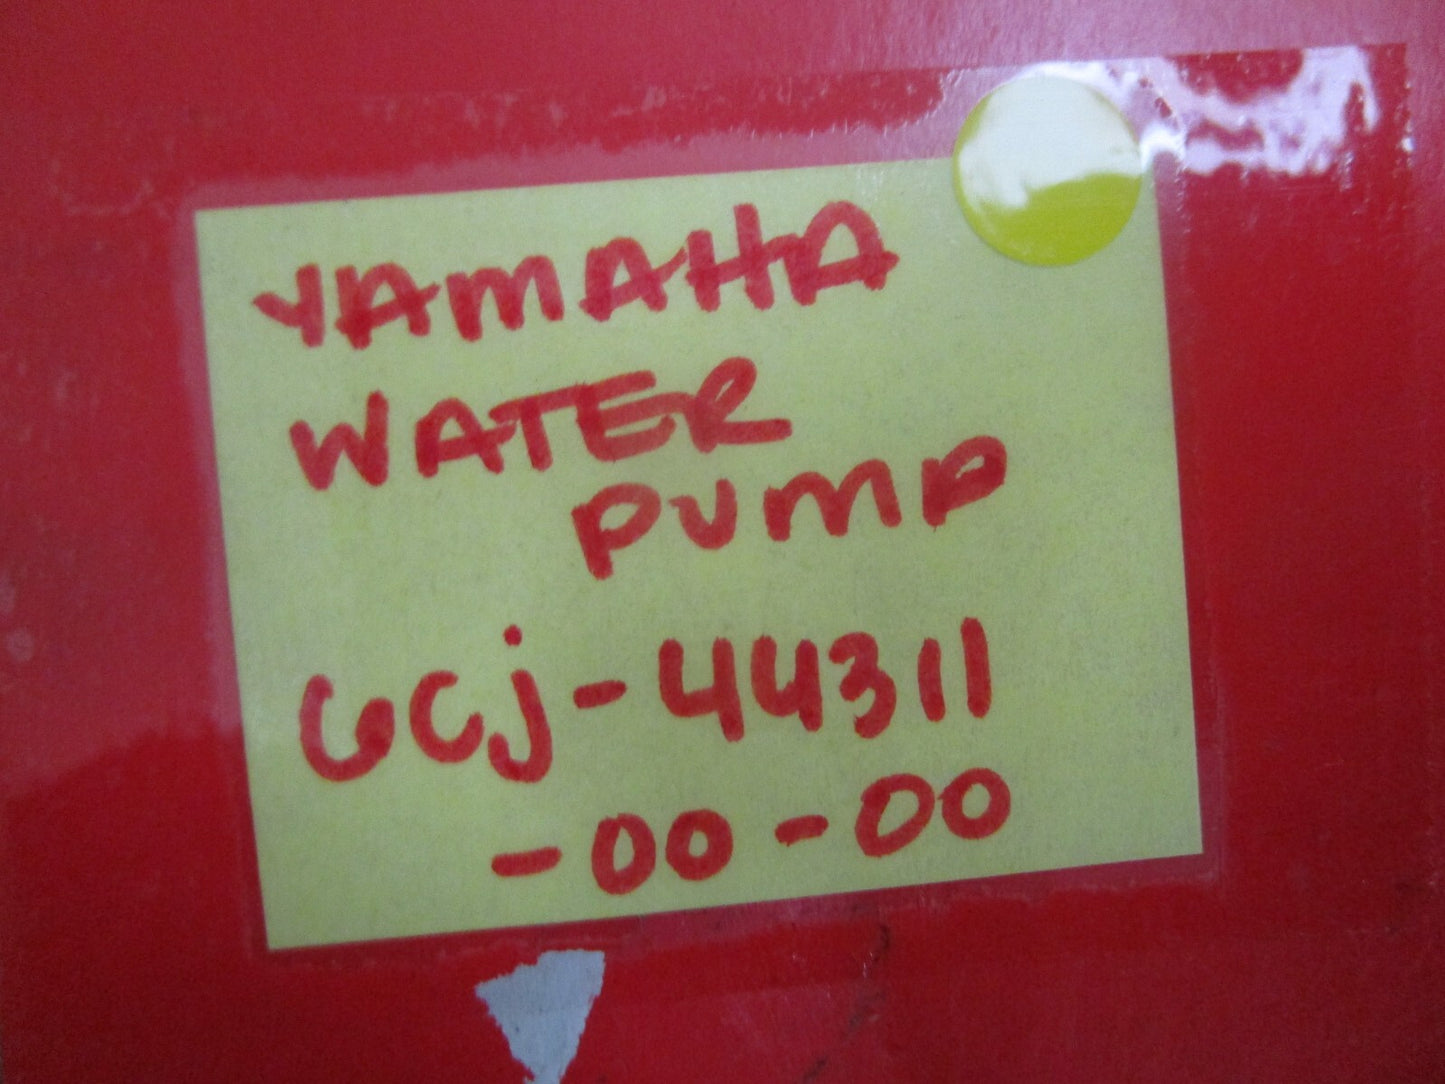 YAMAHA
WATER
PUMP
6CJ-44311
-00-00